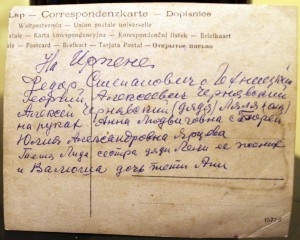 Lap – Correspondenzkarte – Dopisnice
Weltpostverein – Union postale universelle
tale – Karta korespondencyjna – Korespondenční lístek – Briefkaart
– Postcard – Brefkort – Tarjeta Postal – Открытое письмо
На Иргене
Федор Степанович с
Георгий Алексеевич Чернавский
Алексей Чернавский (дядя)
на руках Анна Людвиговна с Борей
Юлия Александровна Ярцова
Тетя Лида сестра дяди Лени ее жених
и Валюша дочь тети Ани